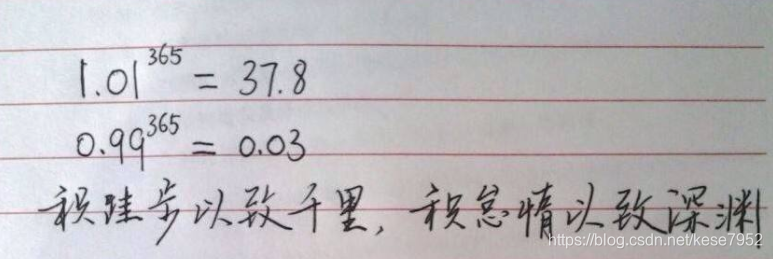 1.01^365 = 37.8
0.99^365 = 0.03
积跬步以致千里，积怠惰以致深渊！
https://blog.csdn.net/kese7952